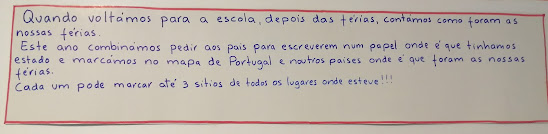 Quando voltámos para a escola, depois das férias, contámos como foram as
nossas férias.
Este ano combinámos pedir aos pais para escreverem num papel onde é que tínhamos
estado e marcámos no mapa de Portugal e noutros países onde é que foram as nossas
férias.
Cada um pode marcar até 3 sítios de todos os lugares onde esteve!!!